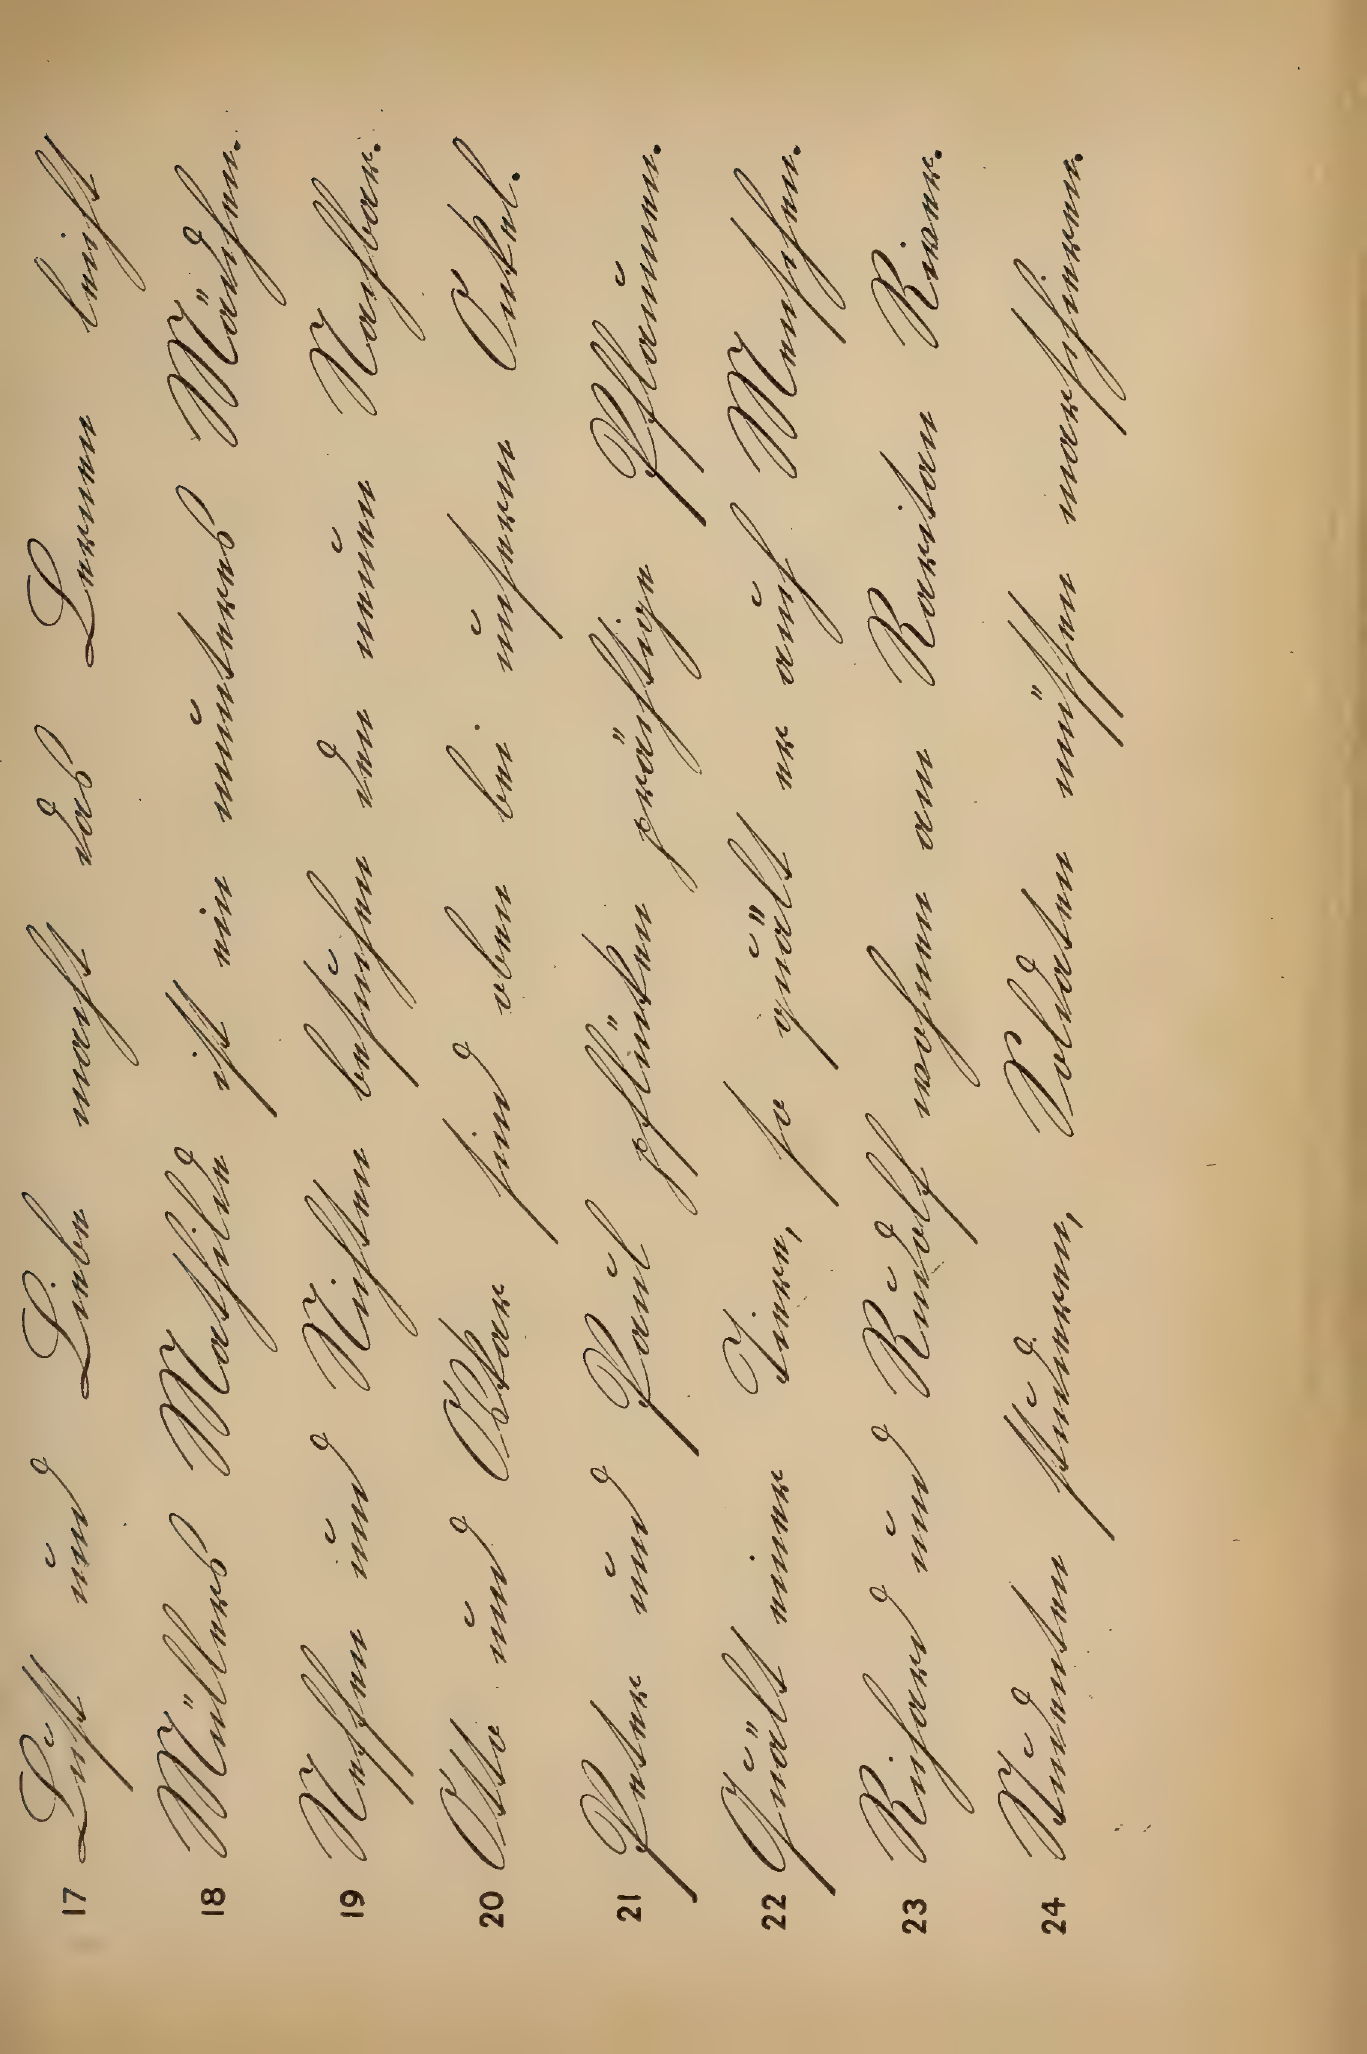 17 Lust und Liebe macht das Lernen leicht
18 Müllers Mathilde ist ein munteres Mädchen.
19 Neffen und Nichten besuchen den neuen Nachbar.
20 Otto und Oskar sind oben bei unserm Onkel.
21 Peter und Paul pflücken prächtige Pflaumen.
22 Quält einer Tiere, so quält er auch Menschen.
23 Richard und Rudolf wohnen am Raritan River.
24 Studenten studieren, Soldaten müssen marschieren.